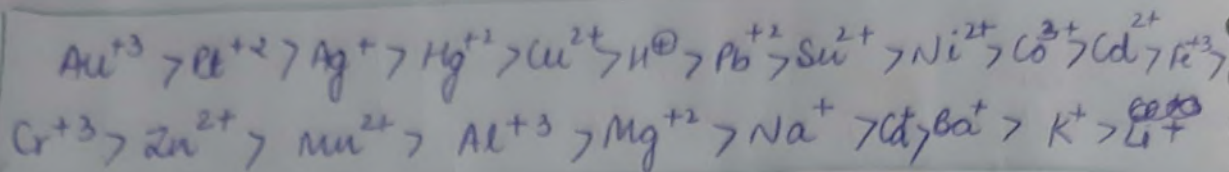 Au⁺³ > Pt⁺² > Ag⁺ > Hg⁺² > Cu²⁺ > H⊕ > Pb⁺² > Sn²⁺ > Ni²⁺ > Co³⁺ > Cd²⁺ > Fe⁺³ >
Cr⁺³ > Zn²⁺ > Mn²⁺ > Al⁺³ > Mg⁺² > Na⁺ > Ca⁺ > Ba⁺ > K⁺ > Li⁺